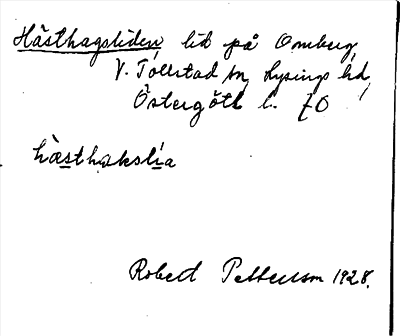 Hästhagsliden lid på Omberg,
V. Tollstad sn, Lysings hd,
Östergötl. l. ÖG
hästhaksli̵a
Robert Pettersson 1928.